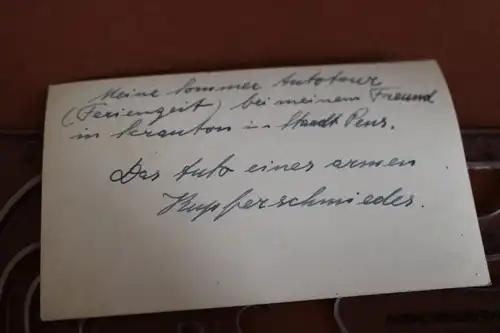 Meine Sommer Autotour
(Ferienzeit) bei meinem Freund
in Scranton in Staadt Pens.
Das Auto eines armen
Kupferschmiedes.